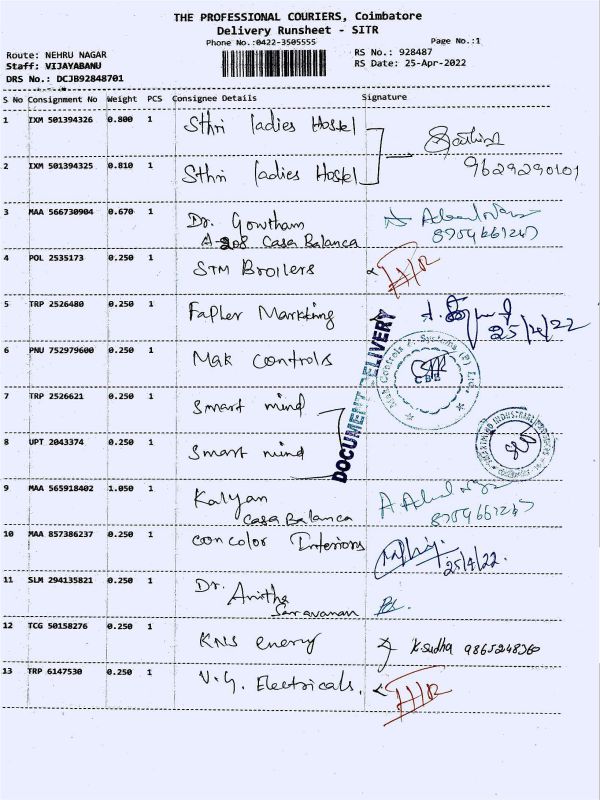 THE PROFESSIONAL COURIERS, Coimbatore
Delivery Runsheet - SITR
Phone No.:0422-3505555 Page No.:1
Route: NEHRU NAGAR RS No.: 928487
Staff: VIJAYABANU RS Date: 25-Apr-2022
DRS No.: DCJB92848701
S No Consignment No Weight PCS Consignee Details Signature
1 IXM 501394326 0.800 1 Sthri ladies Hostel
9629290101
2 IXM 501394325 0.810 1 Sthri ladies Hostel
3 MAA 566730904 0.670 1 Dr. Gowtham
A-208 Casa Balanca 8754661247
4 POL 2535173 0.250 1 STM Broilers
5 TRP 2526480 0.250 1 Fapler Markting
25/4/22
6 PNU 752979600 0.250 1 Mak Controls
Mak Controls & Systems (P) Ltd.
CBE
DOCUMENT DELIVERY
7 TRP 2526621 0.250 1 Smart mind
8 UPT 2043374 0.250 1 Smart mind
9 MAA 565918402 1.050 1 Kalyan
Casa Balanca 8754661247
10 MAA 857386237 0.250 1 Concolor Interiors
25/4/22.
11 SLM 294135821 0.250 1 Dr. Anitha
Saravanan
12 TCG 50158276 0.250 1 KNS energy K. Sudha 9865248360
13 TRP 6147530 0.250 1 V.G. Electricals.